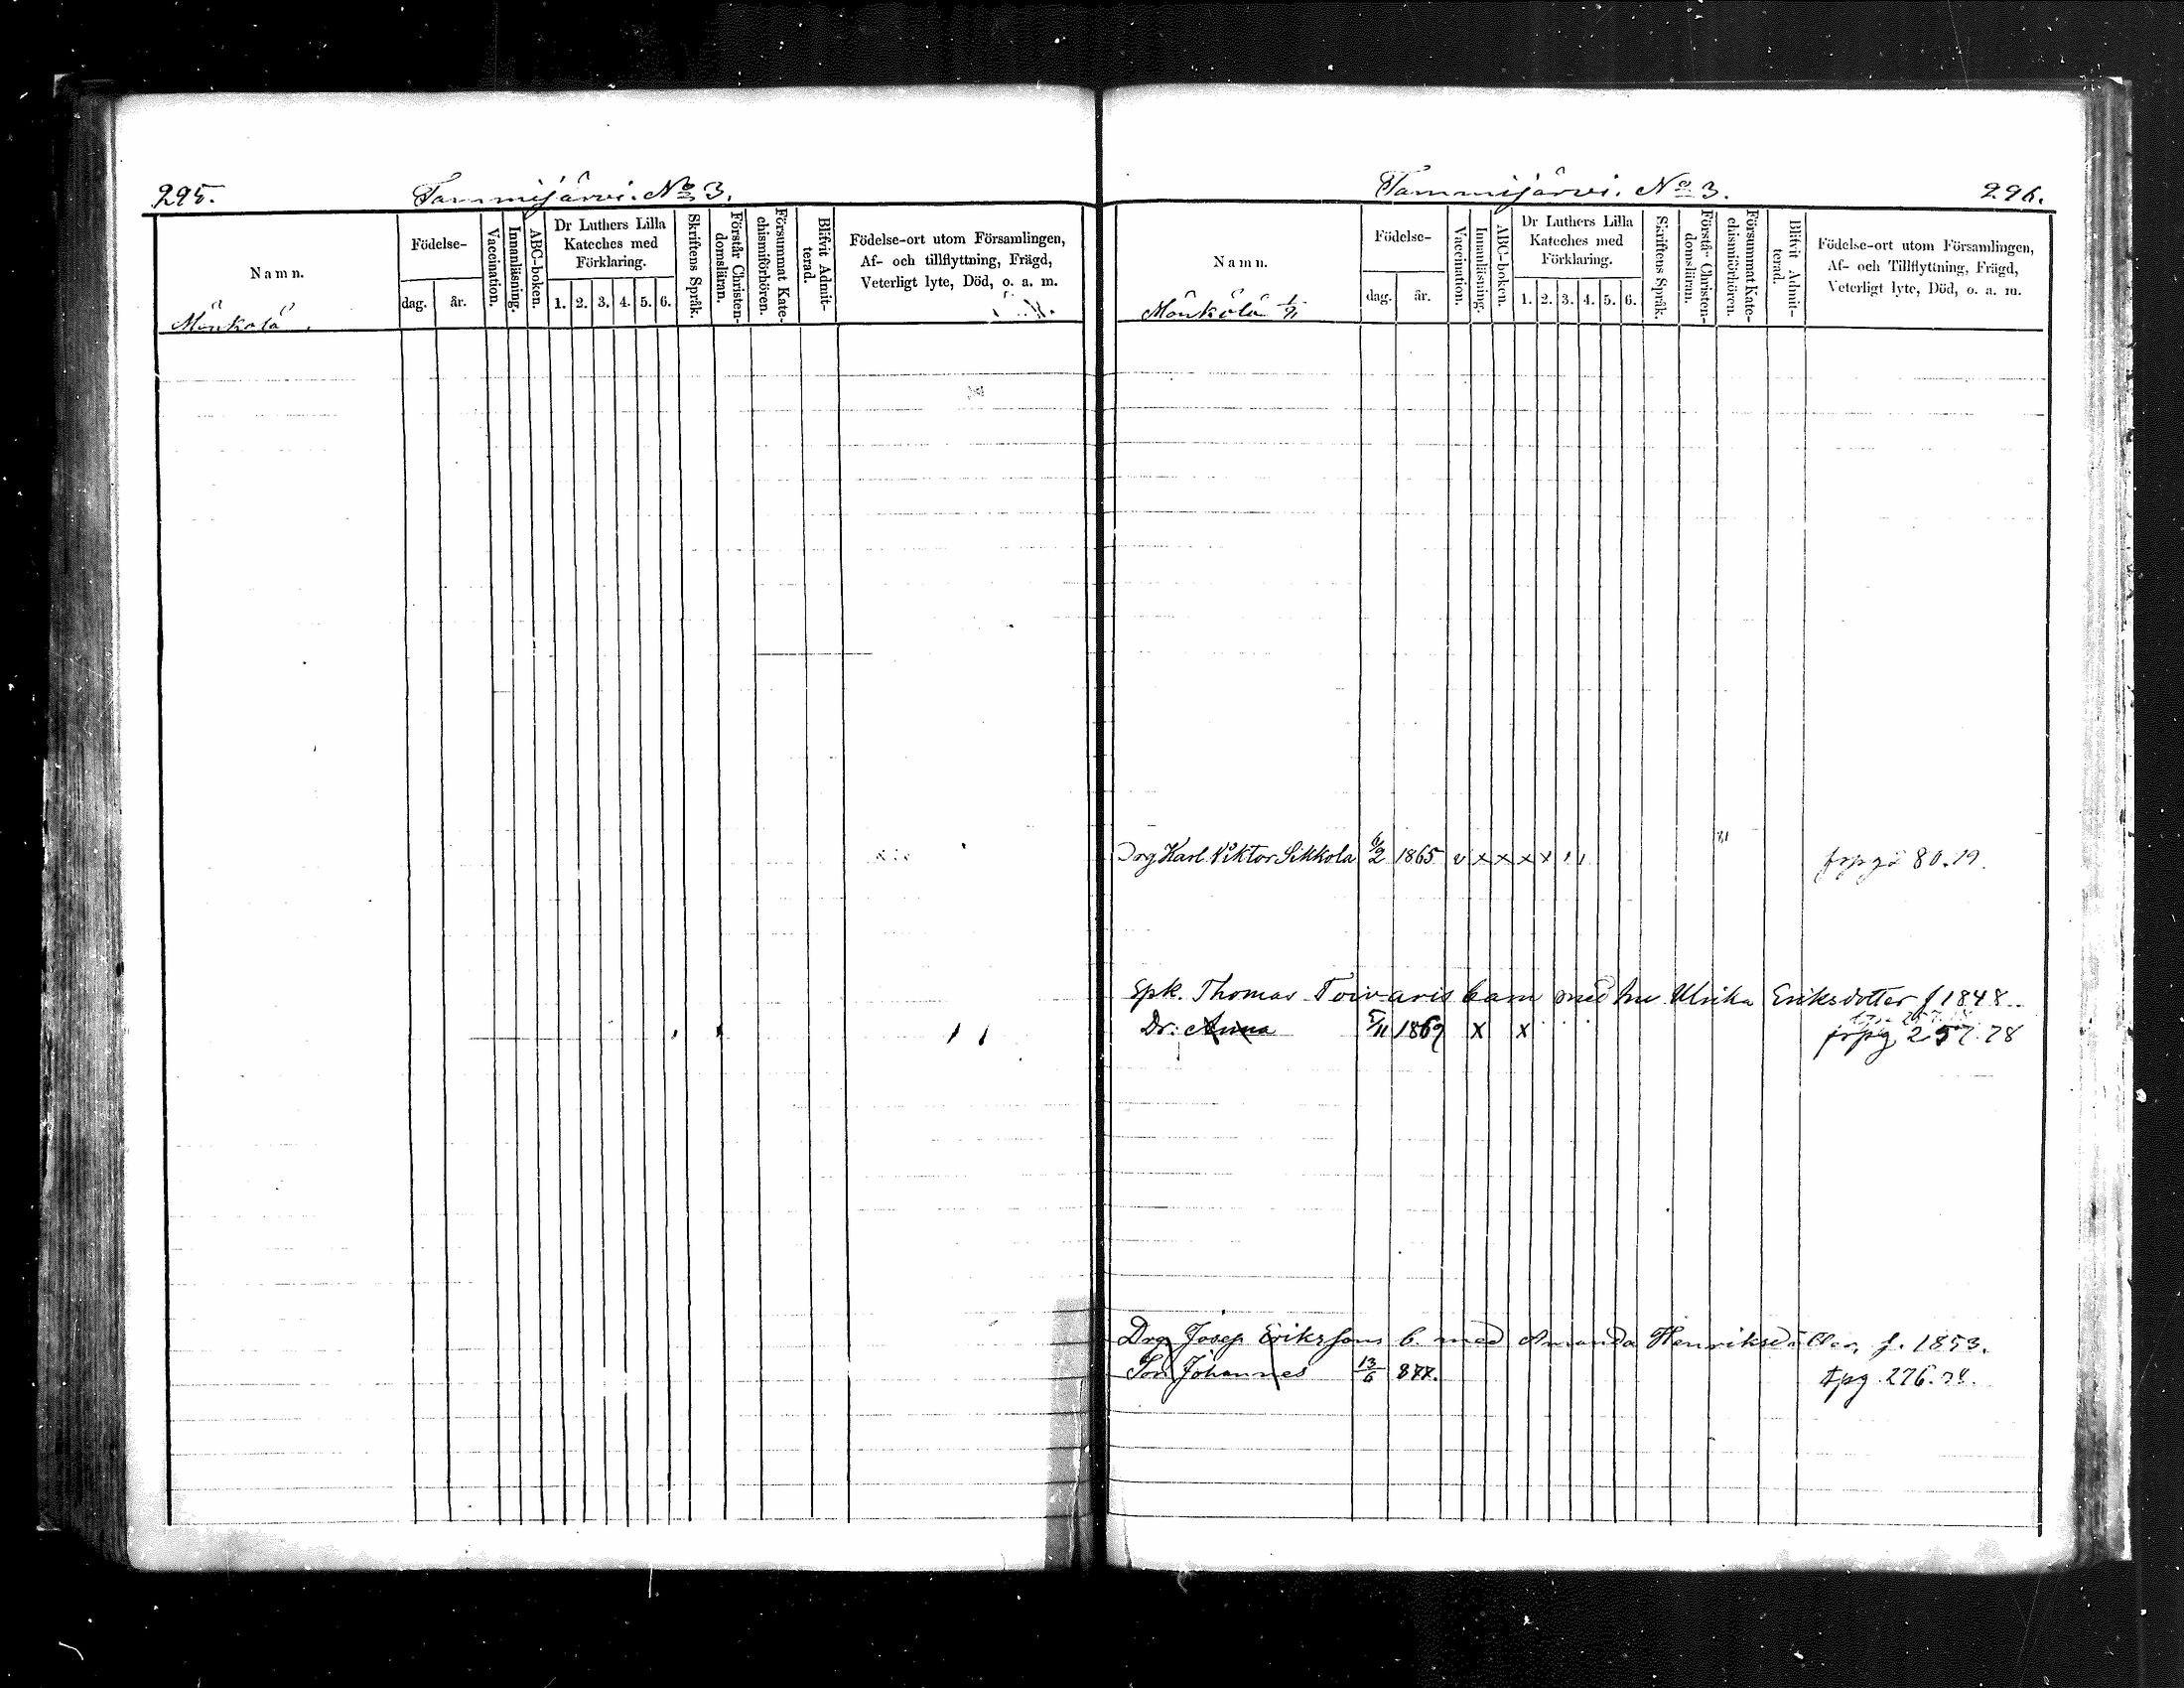 295.
Tammijärvi. No 3.
Namn.
Födelse-
dag.
år.
Vaccination.
Innanläsning.
ABC-boken.
Dr Luthers Lilla
Kateches med
Förklaring.
1. 2. 3. 4. 5. 6.
Skriftens Språk.
Förstår Christen-
domsläran.
Försummat Kate-
chismiförhören.
Blifvit Admit-
terad.
Födelse-ort utom Församlingen,
Af- och tillflyttning, Frägd,
Veterligt lyte, Död, o. a. m.
Mönkölä.
Tammijärvi. No 3.
296.
Namn.
Födelse-
dag.
år.
Vaccination.
Innanläsning.
ABC-boken.
Dr Luthers Lilla
Kateches med
Förklaring.
1. 2. 3. 4. 5. 6.
Skriftens Språk.
Förstår Christen-
domsläran.
Försummat Kate-
chismiförhören.
Blifvit Admit-
terad.
Födelse-ort utom Församlingen,
Af- och Tillflyttning, Frägd,
Veterligt lyte, Död, o. a. m.
Mönkölä
Drg Karl Viktor Sikkola 6/2 1865 v x x x x 80.
Spk. Thomas Toivaris barn med hu Ulrika Eriksdotter f 1848
Dr. Anna 5/11 1869 x x frpg 257.78
Drg Josep Erikssons b. med Amanda Henriksdotter, f. 1853.
Son Johannes 13/6 877. tpg. 276.78.